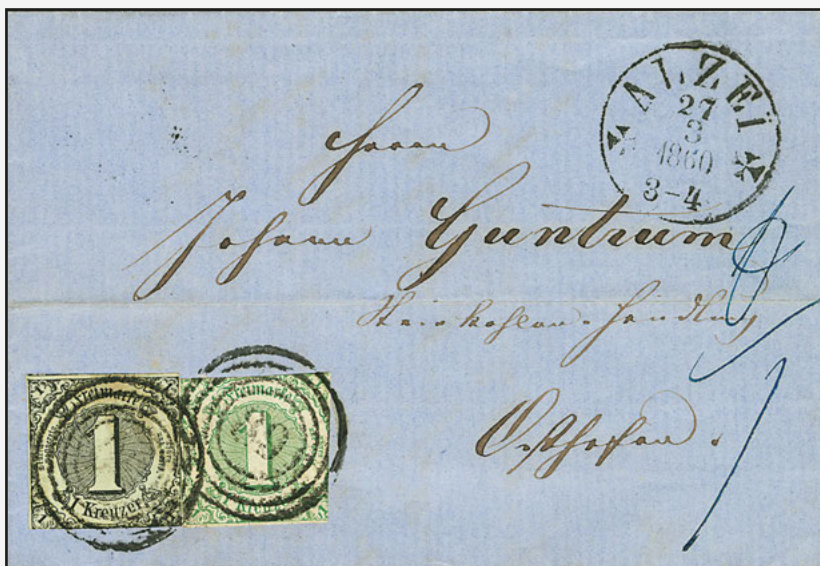 ALZEÏ
27
3
1860
3-4
Herrn
Johann Guntrum
Steinkohlen-Handlung
Osthofen.
Freimarke
1
1 Kreuzer
Freimarke
1
1 Kreuzer